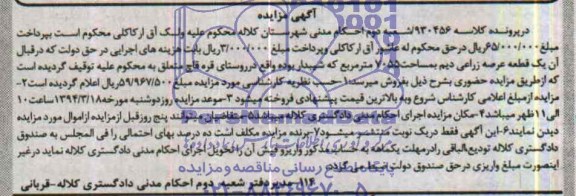 آگهی مزایده
درپرونده کلاسه ۹۳۰۴۵۶/ش دوم احکام مدنی شهرستان کلاله محکوم علیه ولسک آق ارکاکلی محکوم است بپرداخت
مبلغ ۶۵/۰۰۰/۰۰۰ریال درحق محکوم له عاشور آق ارکاکلی وپرداخت مبلغ ۳/۰۰۰/۰۰۰ریال بابت هزینه های اجرایی در حق دولت که درقبال
آن یک قطعه عرصه زراعی دیم بمساحت ۷۰۵۵ مترمربع که شیبدار بوده واقع درروستای قره قاچ متعلق به محکوم علیه توقیف گردیده است
که ازطریق مزایده حضوری بشرح ذیل بفروش میرسد:۱-حسب نظریه کارشناسی مورد مزایده مبلغ ۵۹/۹۶۷/۵۰۰ریال اعلام گردیده است۲-
مزایده ازمبلغ اعلامی کارشناس شروع وبه بالاترین قیمت پیشنهادی فروخته میشود ۳-موعد مزایده روزدوشنبه مورخه ۱۳۹۴/۳/۱۸ساعت۱۰
الی۱۱ظهر میباشد۴-مکان مزایده اجرای احکام مدنی دادگستری کلاله میباشد۵-متقاضیان میتوانند پنج روزقبل ازمزایده ازاموال مورد مزایده
دیدن نمایند۶-این آگهی فقط دریک نوبت منتشر میشود۷-برنده مزایده مکلف است ده درصد بهای احتمالی را فی المجلس به صندوق
دادگستری کلاله تودیع والباقی رادرمهلت یکماهه به حساب مذکور واریزوفیش آن راتحویل اجرای احکام مدنی دادگستری کلاله نماید درغیر
اینصورت مبلغ واریزی درحق صندوق دولت ضبط می گردد.
مدیردفتر شعبه دوم احکام مدنی دادگستری کلاله-قربانی
پایگاه اطلاع رسانی مناقصه و مزایده